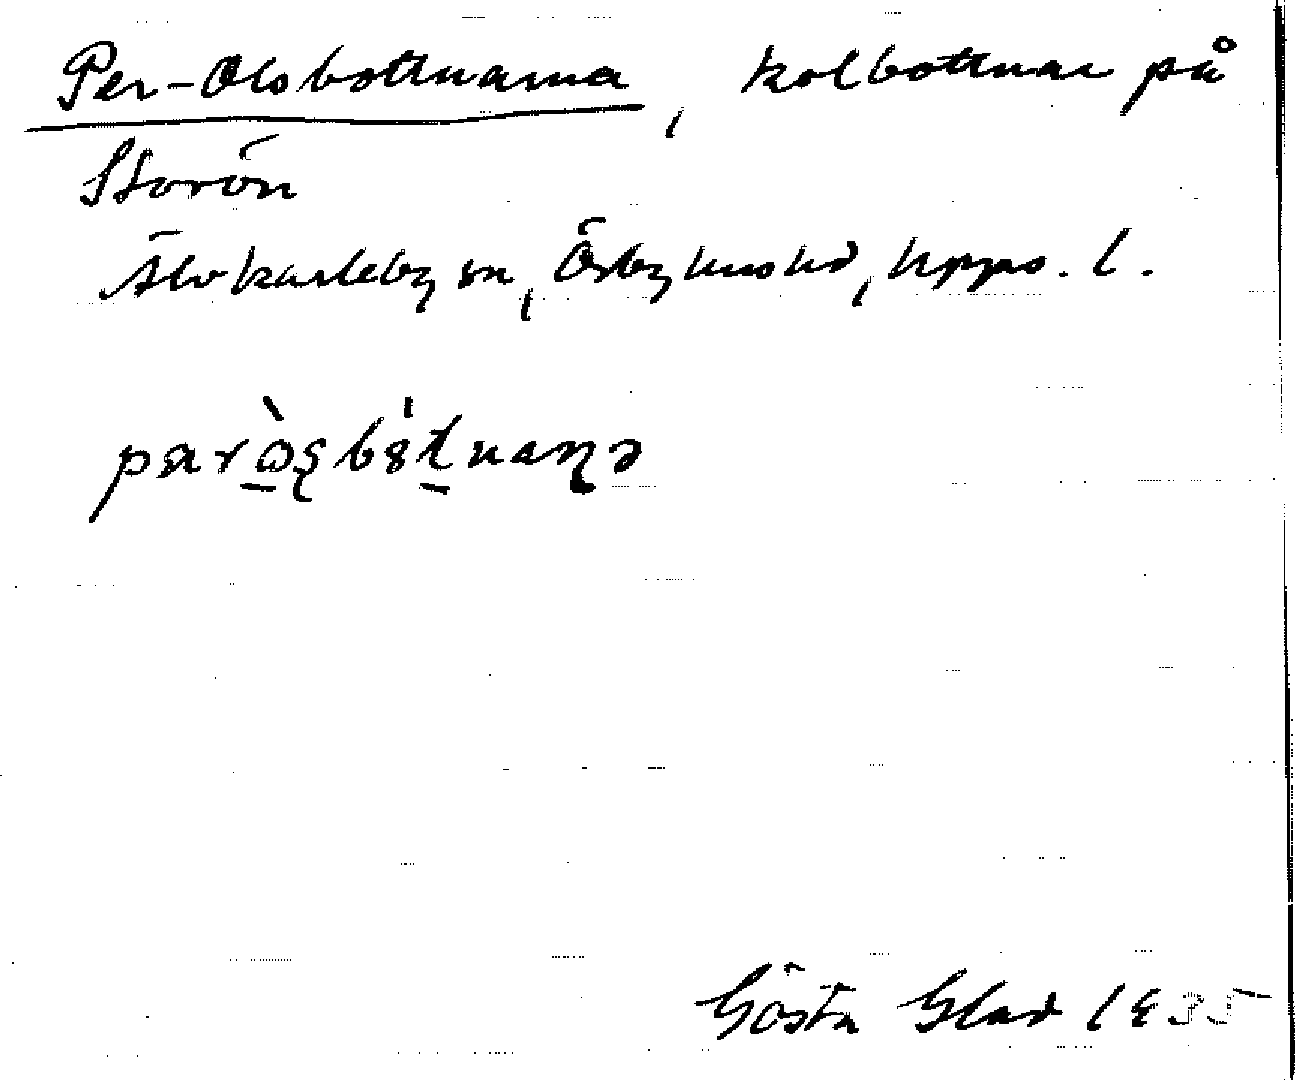 Per-Olsbottnarna, kolbottnar på
Storön
Älvkarleby sn, Örbyhus hd, Upps. l.
Gösta Glad 1935